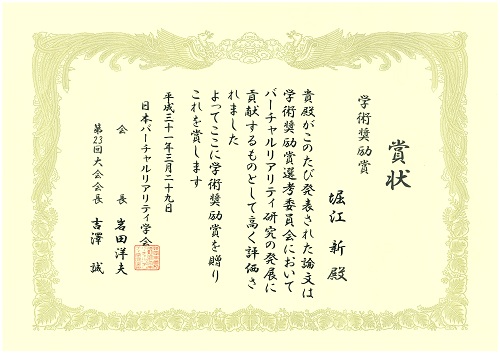 賞状
学術奨励賞
堀江 新 殿
貴殿がこのたび発表された論文は
学術奨励賞選考委員会において
バーチャルリアリティ研究の発展に
貢献するものとして高く評価さ
れました
よってここに学術奨励賞を贈り
これを賞します
平成三十一年三月二十九日
日本バーチャルリアリティ学会
会長 岩田洋夫
第23回大会会長 吉澤 誠